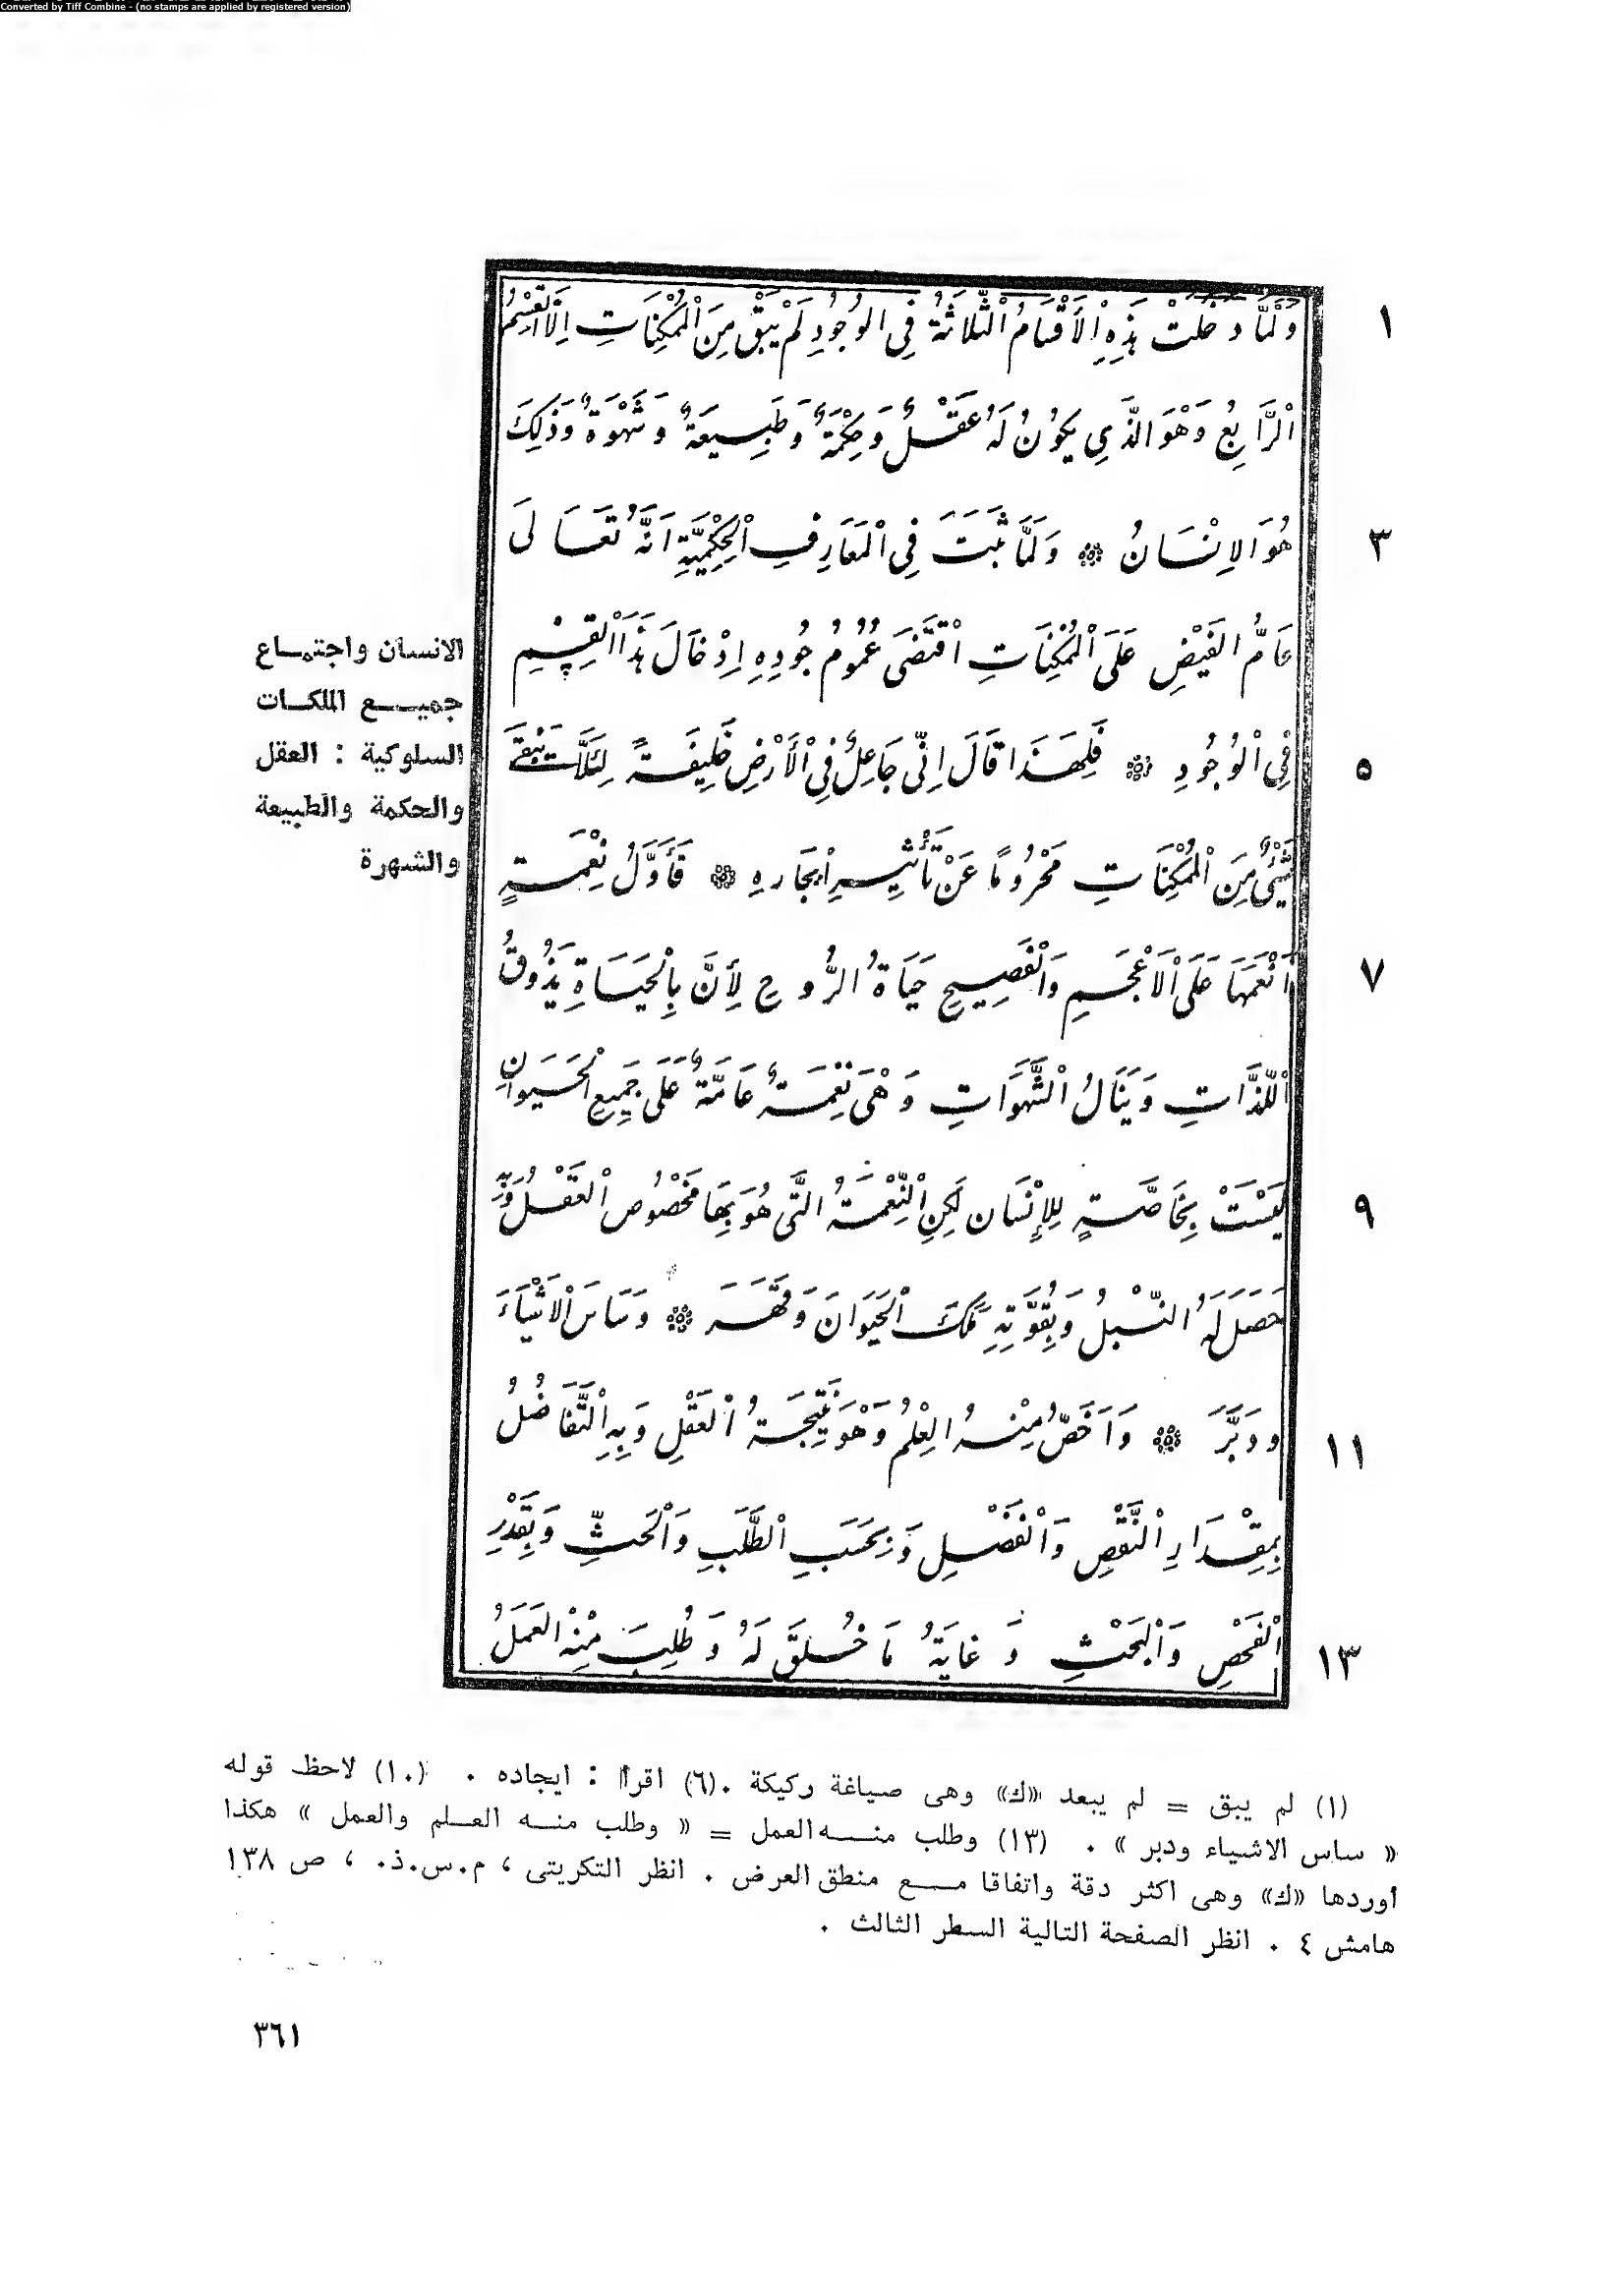 Converted by Tiff Combine - (no stamps are applied by registered version)
وَلَمَّا دَخَلَتْ هٰذِهِ الأَقْسَامُ الثَّلاثَةُ فِي الوُجُودِ لَمْ يَبْقَ مِنَ المُمْكِنَاتِ اِلَّا القِسْمُ
١
الرَّابِعُ وَهْوَ الَّذِي يَكُونُ لَهُ عَقْلٌ وَحِكْمَةٌ وَطَبِيعَةٌ وَشَهْوَةٌ وَذٰلِكَ
هُوَ الاِنْسَانُ ۞ وَلَمَّا ثَبَتَ فِي الْمَعَارِفِ الحِكْمِيَّةِ اَنَّهُ تَعَالَى
٣
عَامُّ الفَيْضِ عَلَى المُمْكِنَاتِ اقْتَضَى عُمُومُ جُودِهِ اِدْخَالَ هٰذَا القِسْمِ
فِي الْوُجُودِ ۞ فَلِهَذَا قَالَ اِنِّي جَاعِلٌ فِي الْأَرْضِ خَلِيفَةً لِئَلَّا يَبْقَى
٥
شَيْءٌ مِنَ المُمْكِنَاتِ مَحْرُومًا عَنْ تَأْثِيرِ اِيجَارِهِ ۞ فَأَوَّلُ نِعْمَةٍ
أَنْعَمَهَا عَلَى الْاَعْجَمِ وَالْفَصِيحِ حَيَاةُ الرُّوحِ لِأَنَّ بِالْحَيَاةِ يَذُوقُ
٧
اللَّذَّاتِ وَيَنَالُ الشَّهَوَاتِ وَهْىَ نِعْمَةٌ عَامَّةٌ عَلَى جَمِيعِ الحَيَوَانِ
لَيْسَتْ بِخَاصَّةٍ لِلإِنْسَانِ لٰكِنِ النِّعْمَةُ الَّتِى هُوَ بِهَا مَخْصُوص العَقْلُ وَبِهِ
٩
حَصَلَ لَهُ النُّبْلُ وَبِقُوَّتِهِ مَلَكَ الْحَيَوَانَ وَقَهَرَ ۞ وَسَاسَ الْاَشْيَاءَ
وَدَبَّرَ ۞ وَاَخَصُّ مِنْهُ العِلْمُ وَهْوَ نَتِيجَةُ العَقْلِ وَبِهِ التَّفَاضُلُ
١١
بِمِقْدَارِ النَّقْصِ وَالْفَضْلِ وَبِحَسَبِ الطَّلَبِ وَالْحَثِّ وَبِقَدْرِ
الْفَحْصِ وَالْبَحْثِ وَغَايَةُ مَا خُلِقَ لَهُ وَطُلِبَ مِنْهُ العَمَلُ
١٣
الانسان واجتماع
جميع الملكات
السلوكية : العقل
والحكمة والطبيعة
والشهرة
(١) لم يبق = لم يبعد «ك» وهى صياغة ركيكة .(٦) اقرأ : ايجاده . (١٠) لاحظ قوله
« ساس الاشياء ودبر » . (١٣) وطلب منه العمل = « وطلب منه العلم والعمل » هكذا
أوردها «ك» وهى اكثر دقة واتفاقا مع منطق العرض . انظر التكريتى ، م.س.ذ. ، ص ١٣٨
هامش ٤ . انظر الصفحة التالية السطر الثالث .
٣٦١